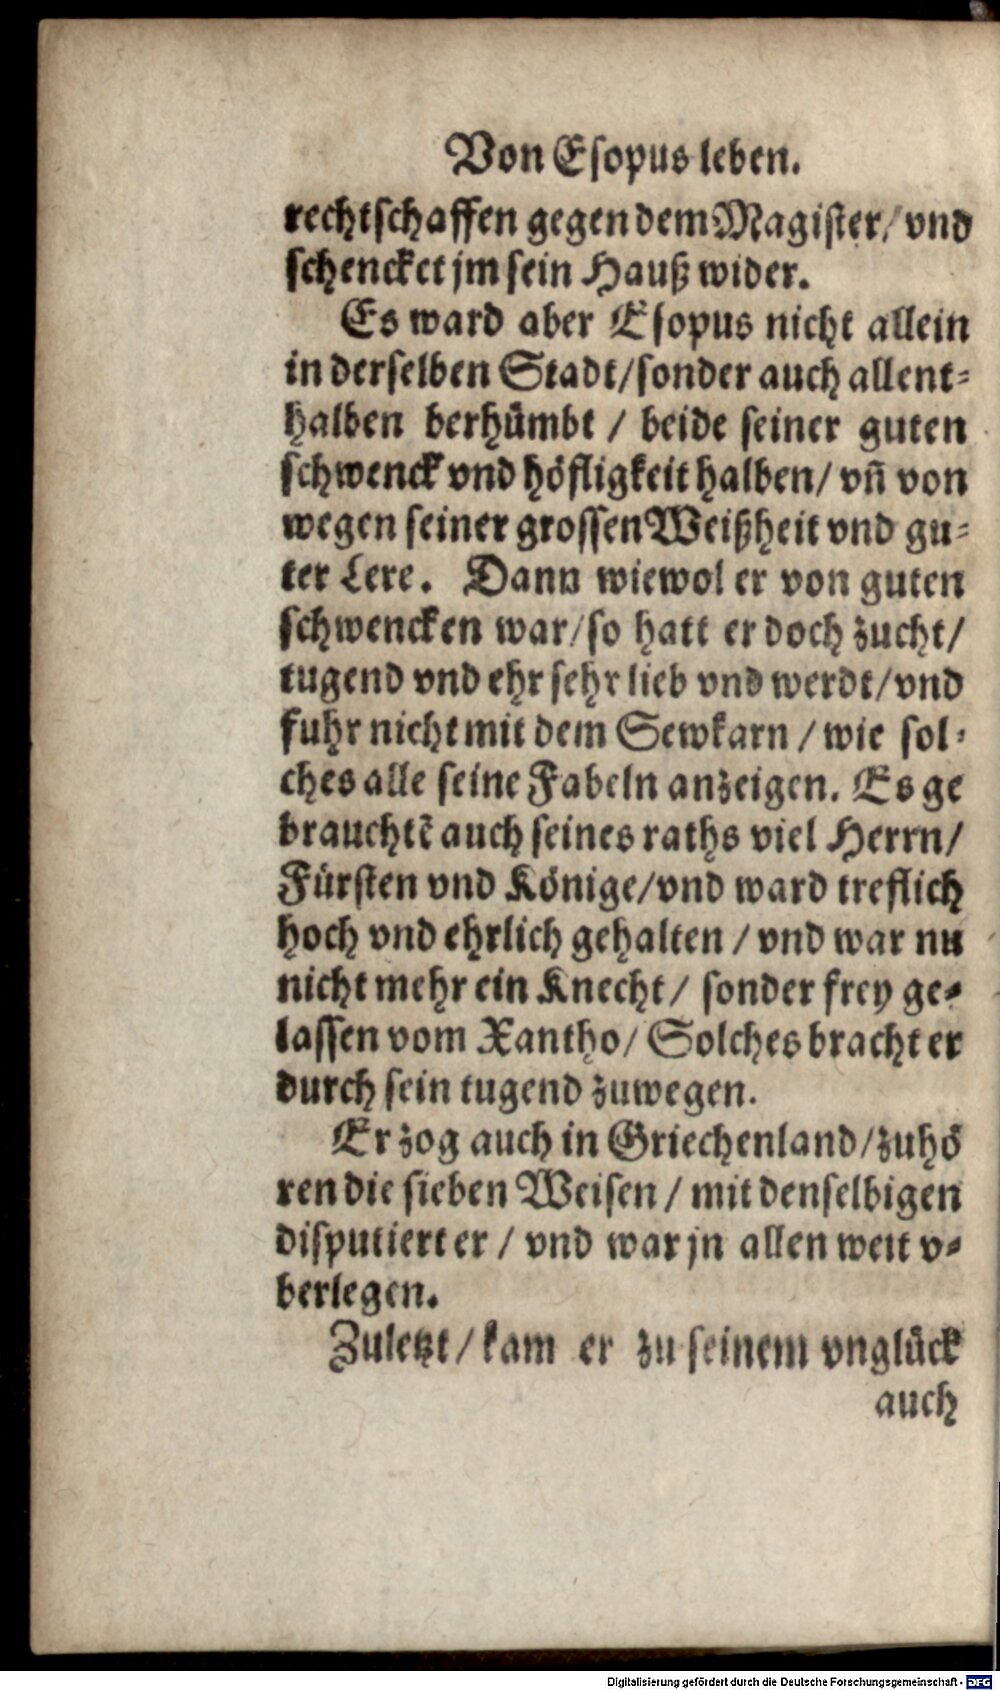 Von Esopus leben.
rechtschaffen gegen dem Magister/ vnd
schencket jm sein Hauß wider.
Es ward aber Esopus nicht allein
in derselben Stadt/ sonder auch allent⸗
halben berhümbt / beide seiner guten
schwenck vnd höfligkeit halben/ vñ von
wegen seiner grossen Weißheit vnd gu⸗
ter Lere. Dann wiewol er von guten
schwencken war/ so hatt er doch zucht/
tugend vnd ehr sehr lieb vnd werdt/ vnd
fuhr nicht mit dem Sewkarn / wie sol⸗
ches alle seine Fabeln anzeigen. Es ge
brauchtẽ auch seines raths viel Herrn/
Fürsten vnd Könige/ vnd ward treflich
hoch vnd ehrlich gehalten / vnd war nu
nicht mehr ein Knecht/ sonder frey ge⸗
lassen vom Xantho/ Solches bracht er
durch sein tugend zuwegen.
Er zog auch in Griechenland/ zuhö
ren die sieben Weisen / mit denselbigen
disputiert er / vnd war jn allen weit v⸗
berlegen.
Zuletzt/ kam er zu seinem vnglück
auch
Digitalisierung gefördert durch die Deutsche Forschungsgemeinschaft - DFG